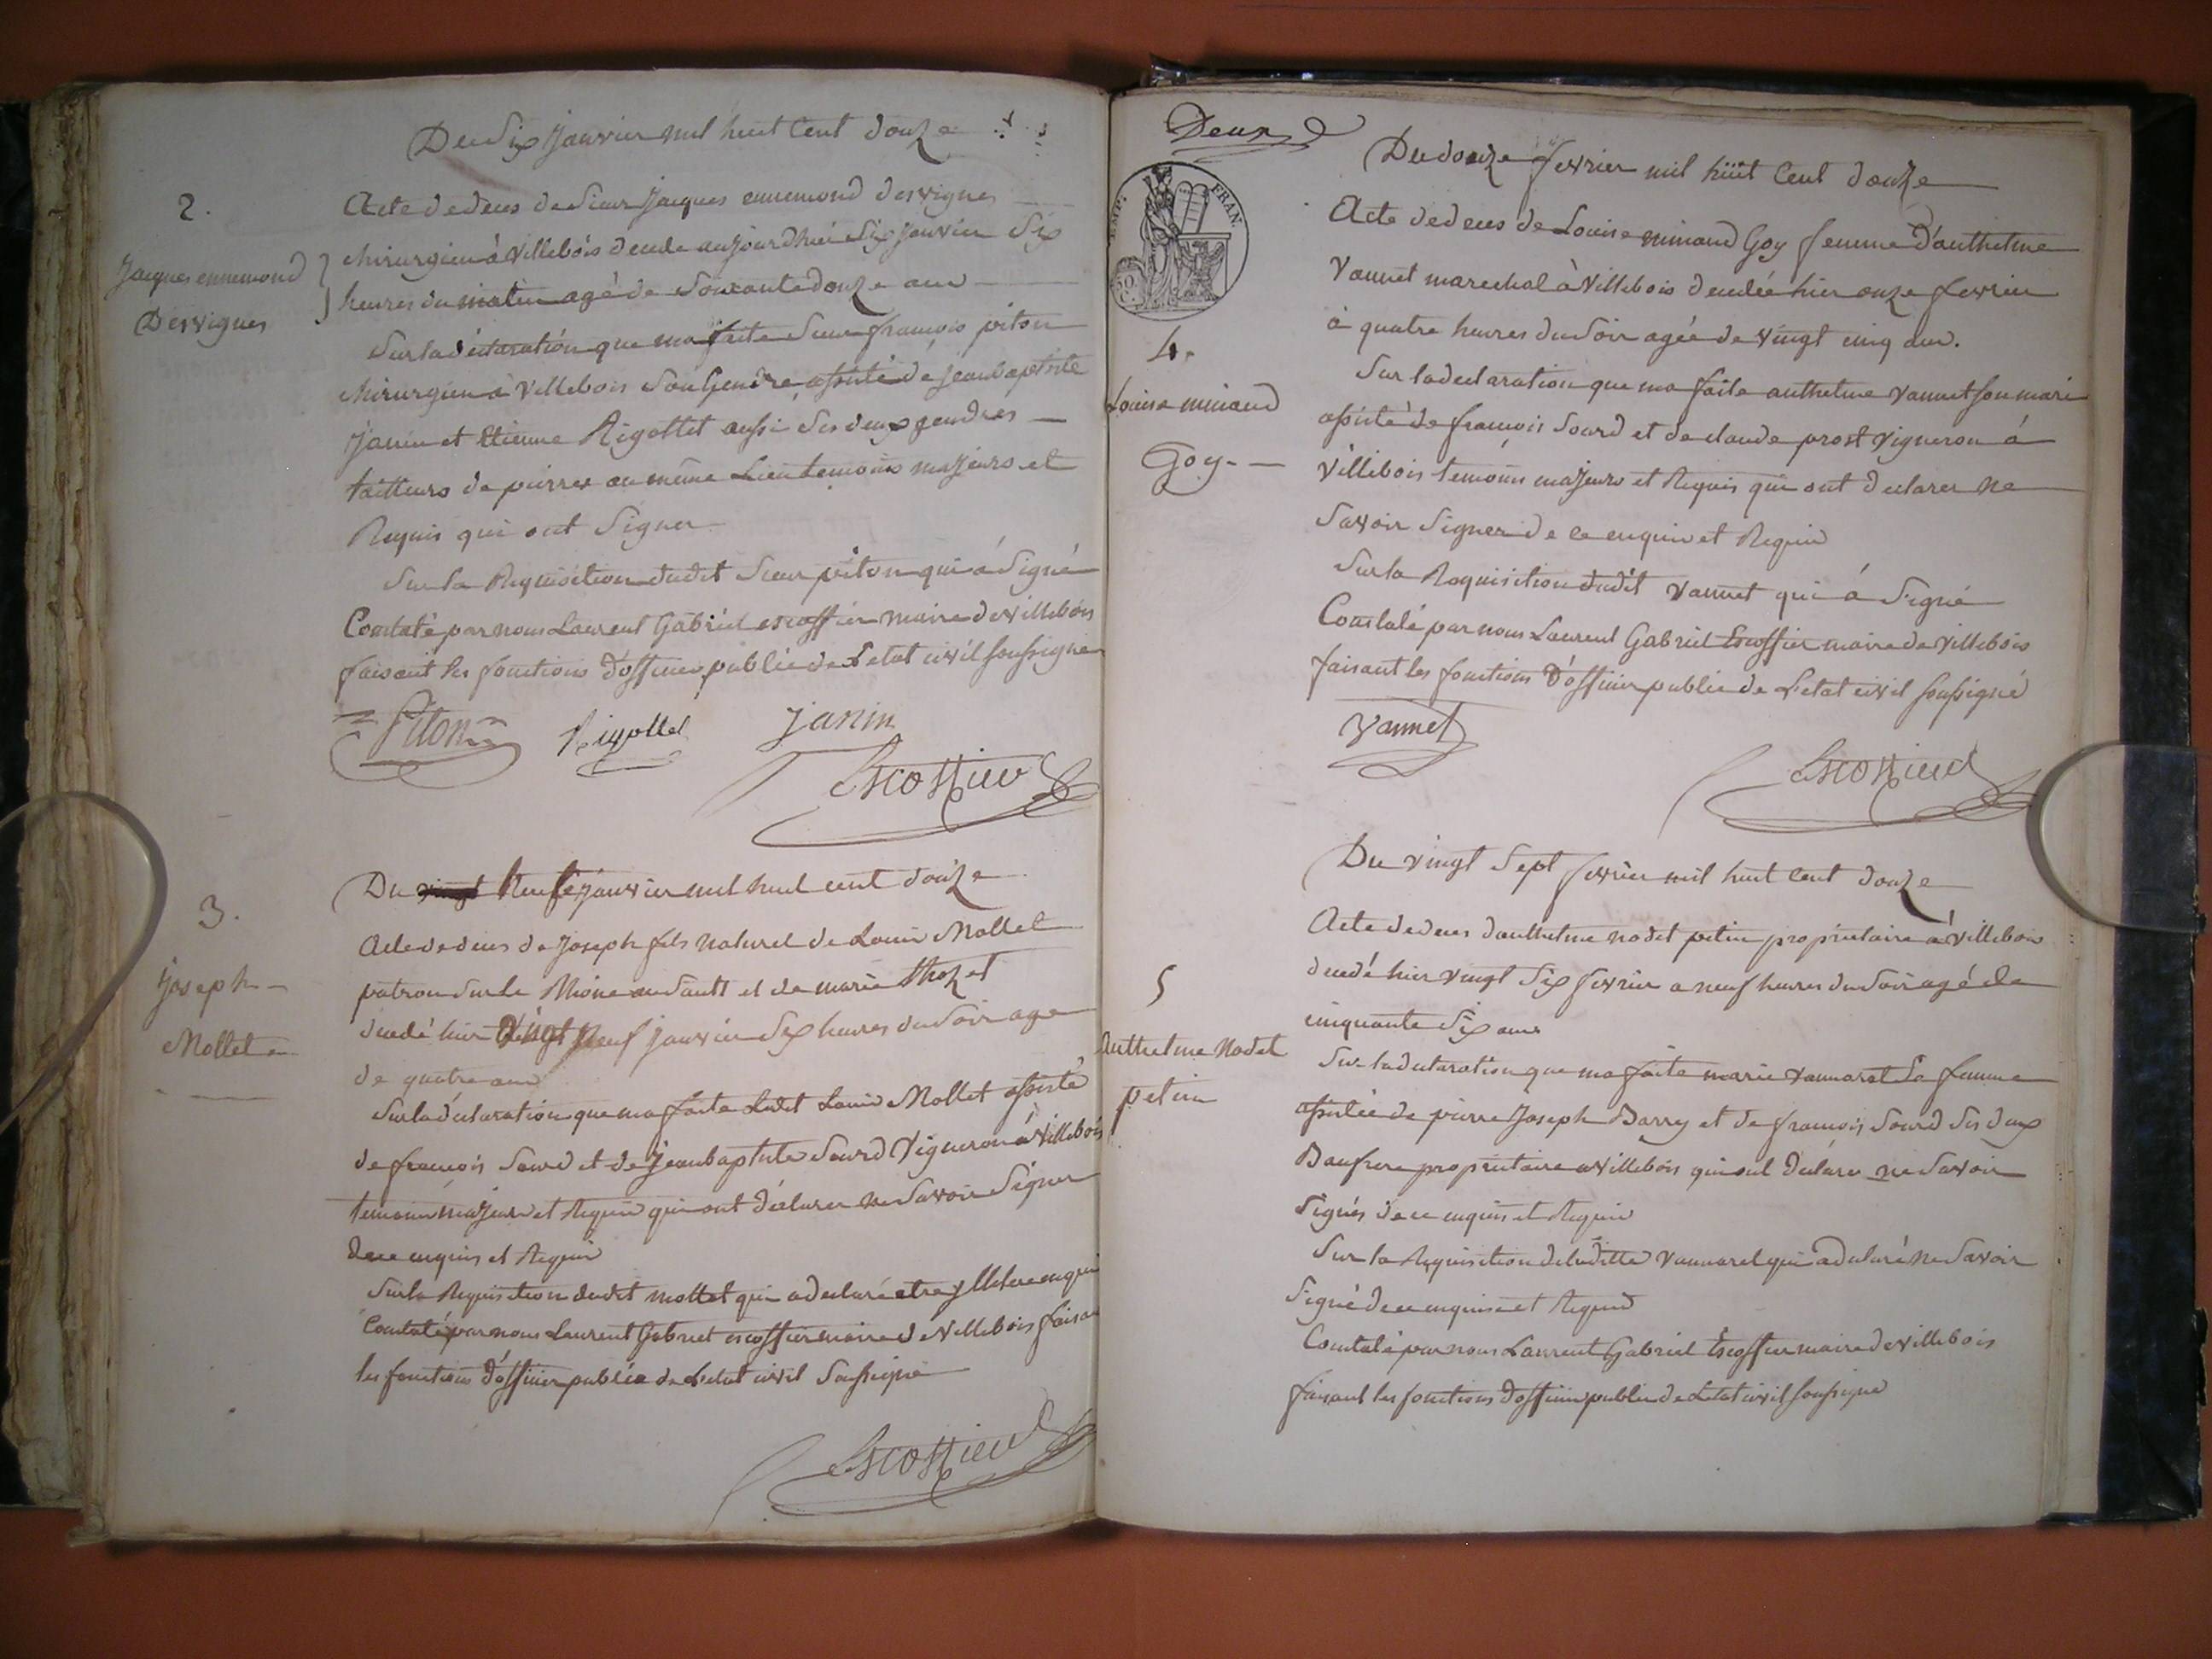 Du Six janvier mil huit Cent douze
2.
Jacques ennemond
Dervignes
Acte de deces de Sieur Jacques ennemond dervignes
chirurgien à Villebois decede aujourdhui Six janvier Six
heures du matin agé de Soixante douze ans
Sur la déclaration que ma faite Sieur françois piton
chirurgien à Villebois Son Gendre assisté de jean baptiste
Janin et Etienne Rigottet aussi Ses deux gendres
tailleurs de pierres au même Lieu temoins majeurs et
Requis qui ont Signer
Sur la Requisition dudit Sieur piton qui á Signé
Constaté par nous Laurent Gabriel escoffier maire de villebois
faisant les fonctions d'officier public de L'etat civil soussigné
Piton Rigottet Janin
Escoffier
3.
Joseph
Mollet
Du vingt Neuf janvier mil huit cent douze
Acte de deces de Joseph fils naturel de Louis Mollet
patron sur le Rhône au Sault et de marie thozet
decedé hier neuf janvier Six heures du Soir age
de quatre ans
Sur la déclaration que ma faite Ledit Louis Mollet assisté
de françois Sourd et de Jean baptiste Sourd Vigneron à Villebois
temoins majeurs et Requis qui ont déclarer ne Savoir Signer
de ce enquis et Requis
Sur la Requisition dudit mollet qui a declaré etre enquis
Constaté par nous Laurent Gabriel escoffier maire de Villebois faisant
les fonctions d'officier public de L'etat civil Soussigné
Escoffier
Deux
EMP. FRAN.
Du douze fevrier mil huit Cent douze
4.
Louise miniand
Goy
Acte de deces de Louise miniand Goy femme d'anthelme
Vannet marechal à Villebois decedée hier onze fevrier
à quatre heures du Soir agée de Vingt cinq ans.
Sur la declaration que ma faite anthelme Vannet son mari
assisté de françois Sourd et de claude prost Vigneron á
Villebois temoins majeurs et Requis qui ont declarer ne
Savoir Signer de ce enquis et Requis
Sur la Requisition dudit Vannet qui á Signé
Constaté par nous Laurent Gabriel Escoffier maire de Villebois
faisant les fonctions D'officier public de L'etat civil soussigné
Vannet
Escoffier
Du vingt Sept fevrier mil huit Cent douze
5
Anthelme Nodet
petin
Acte de deces d'anthelme nodet petin proprietaire à Villebois
decedé hier vingt Six fevrier a neuf heures du Soir agé de
cinquante Six ans
Sur la declaration que ma faite marie Vannarel Sa femme
assistée de pierre Joseph Barry et de françois Sourd Ses deux
Baufrere proprietaire a Villebois qui ont déclaré ne Savoir
Signés de ce enquis et Requis
Sur la Requisition de ladite Vannarel qui a declaré ne Savoir
Signé de ce enquise et Requise
Constaté par nous Laurent Gabriel Escoffier maire de Villebois
faisant les fonctions d'officier public de L'etat civil soussigné